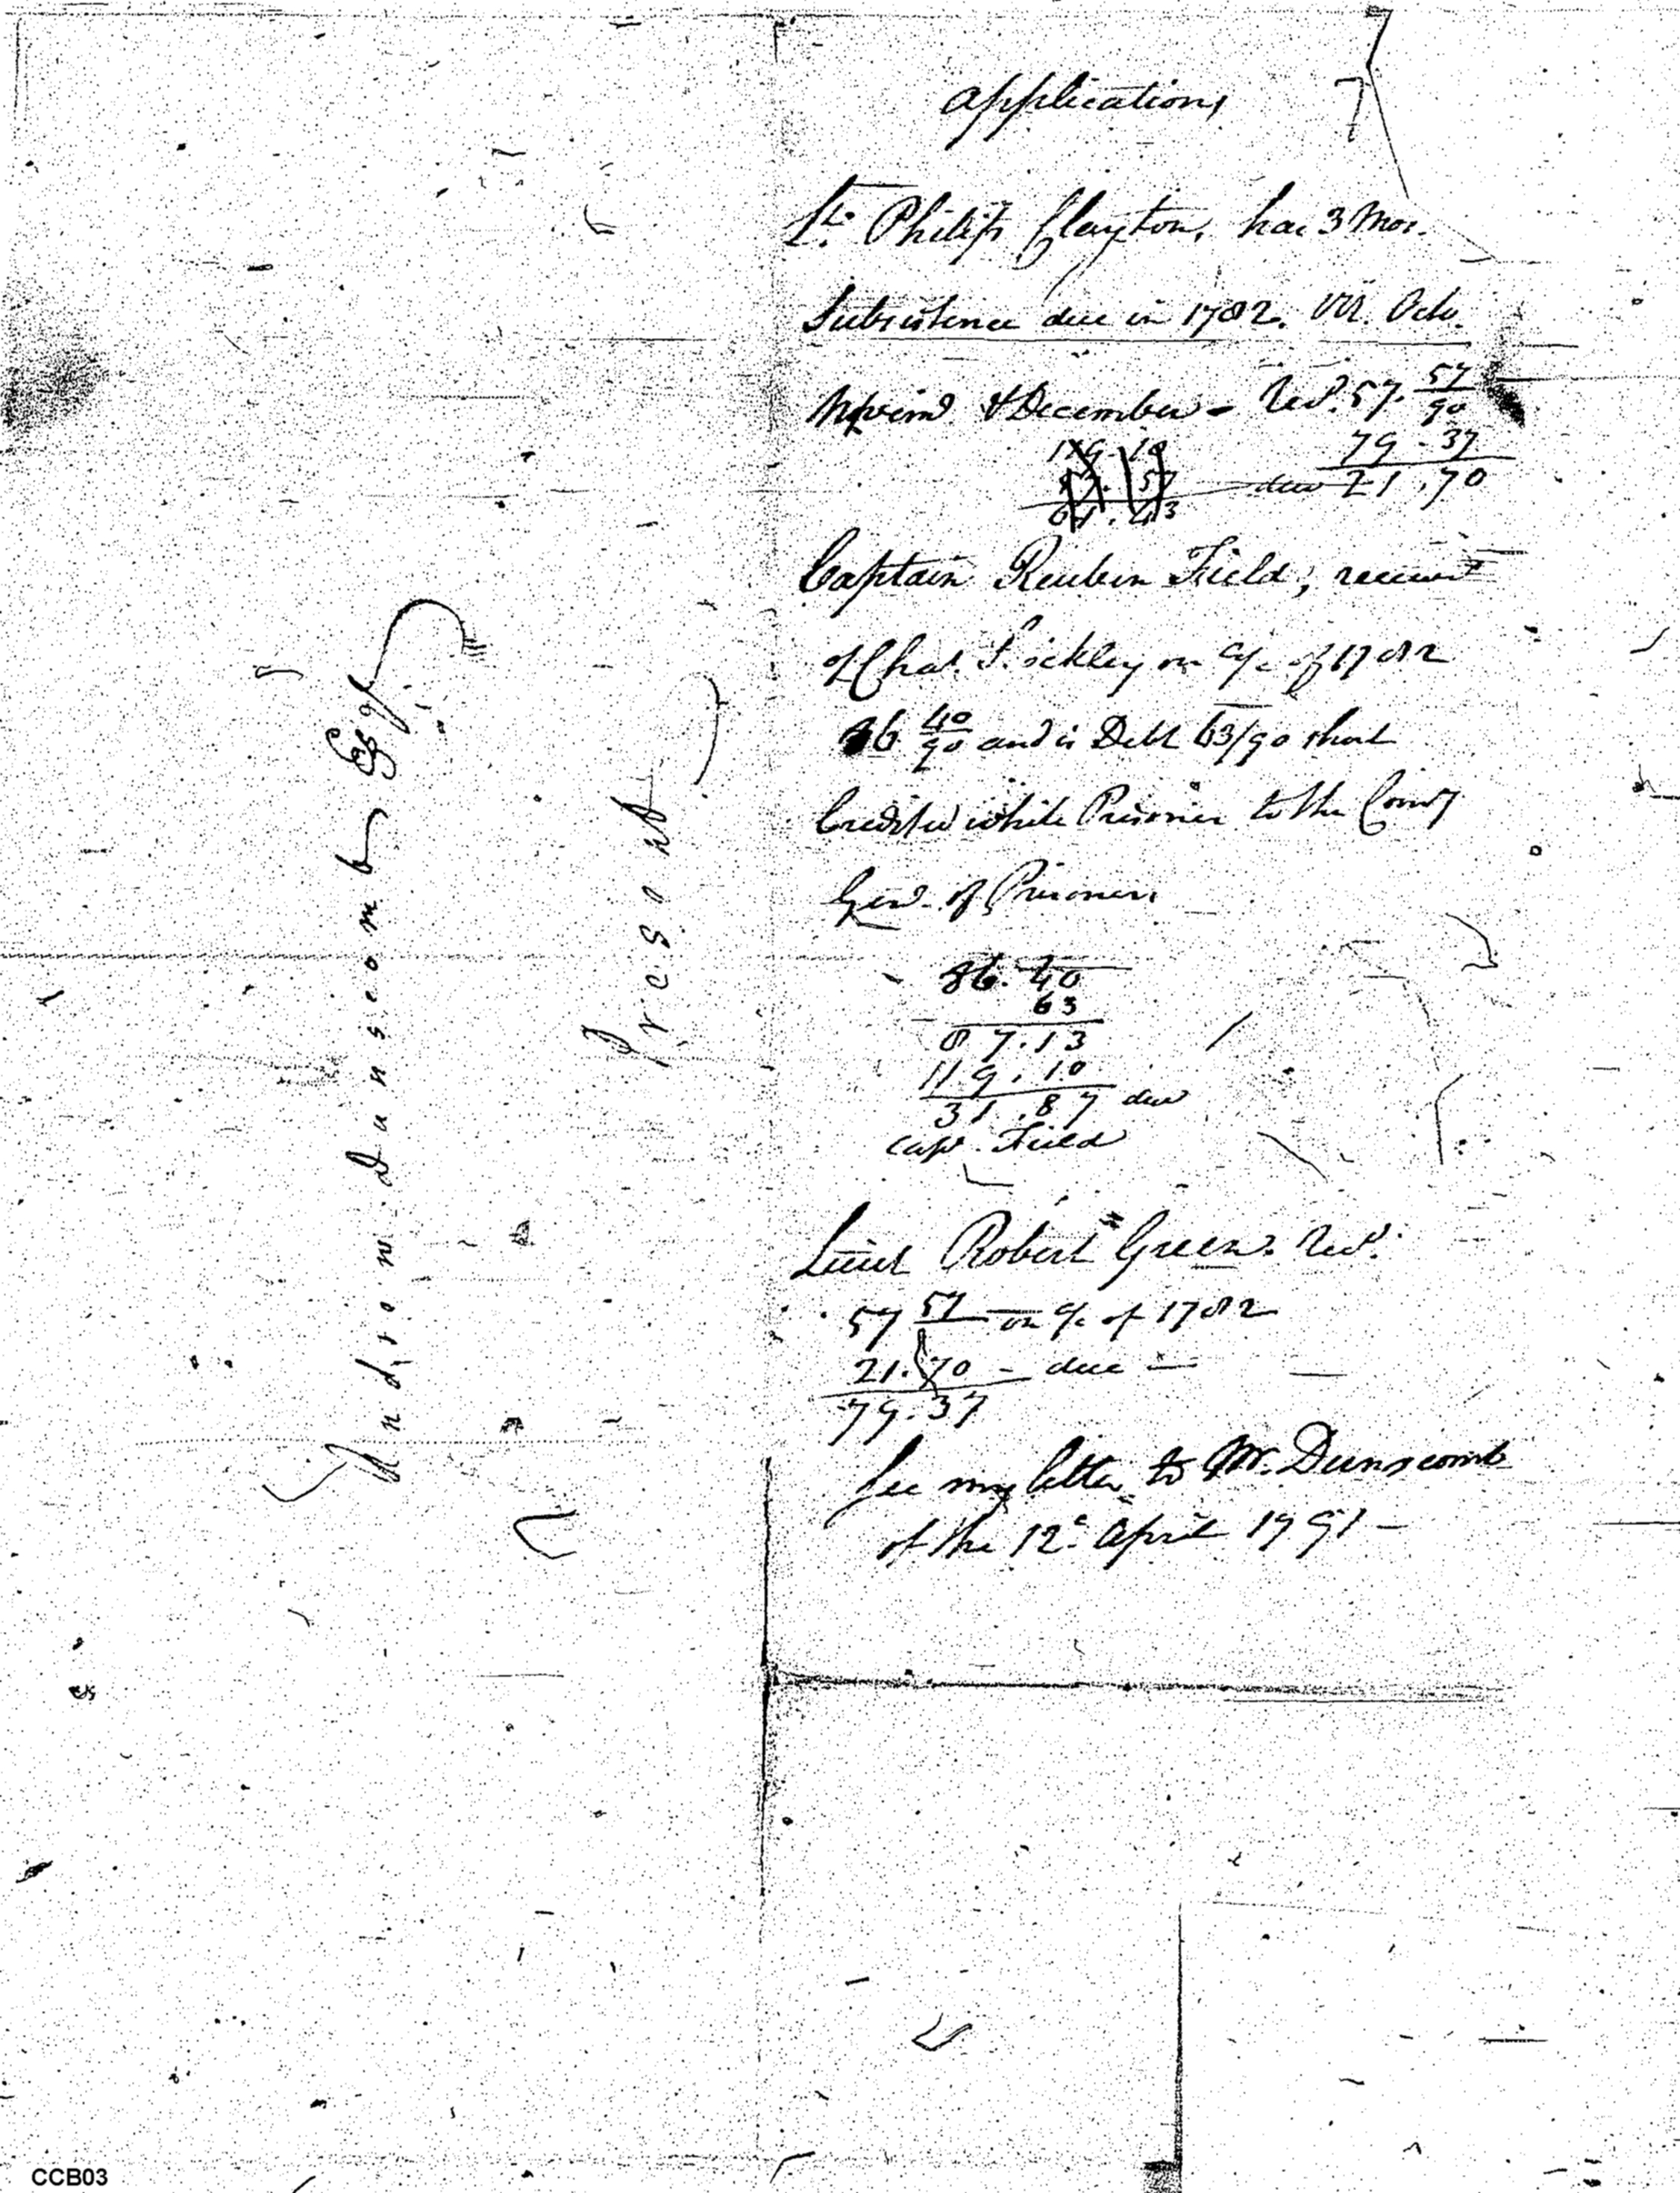 Applications
Lt. Philip Clayton, has 3 Mos.
Subsistence due in 1782. Viz. Octo.
Novem^d & December - Rec^d. 57. 57/90
79 - 37
due 21 . 70
119 . 10
57 . 57
61 . 43
Captain Reuben Field, received
of Cha^s. on a/c of 1782
86 40/90 and is Debt 63/90 short
Credited while Prisoner to the Comy
Genl. of Prisoners
86. 40
63
87. 13
119. 10
31 . 87 due
Capt. Field
Lieut Robert Green. Rec^d.
57 57 on a/c of 1782
21. 70 - due -
79. 37
See my letter to Mr. Dunscomb
of the 12^e. April 1791 -
Andrew Dunscomb Esqr
Present
CCB03